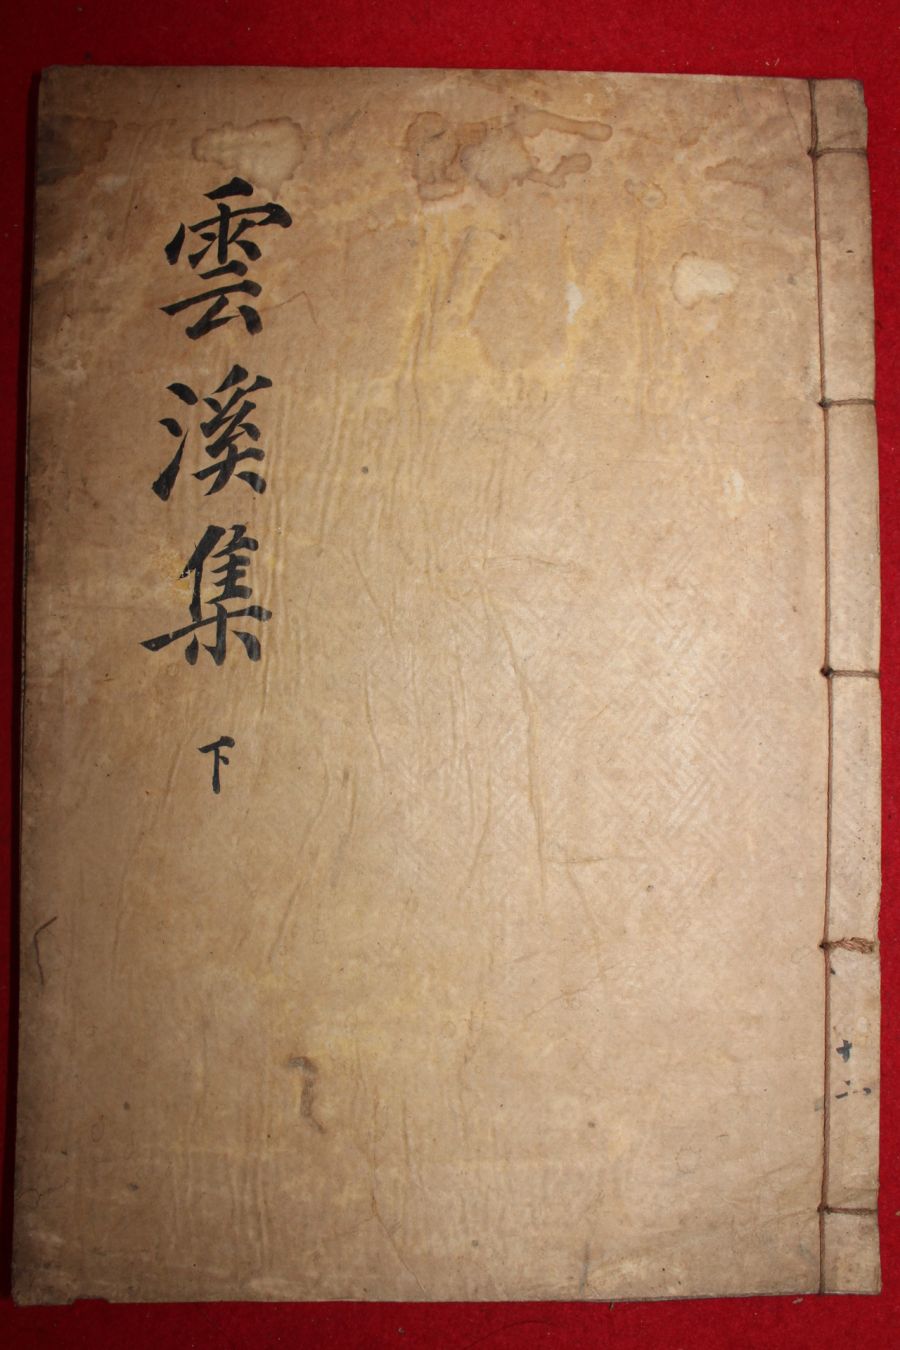 雲溪集 下
十二